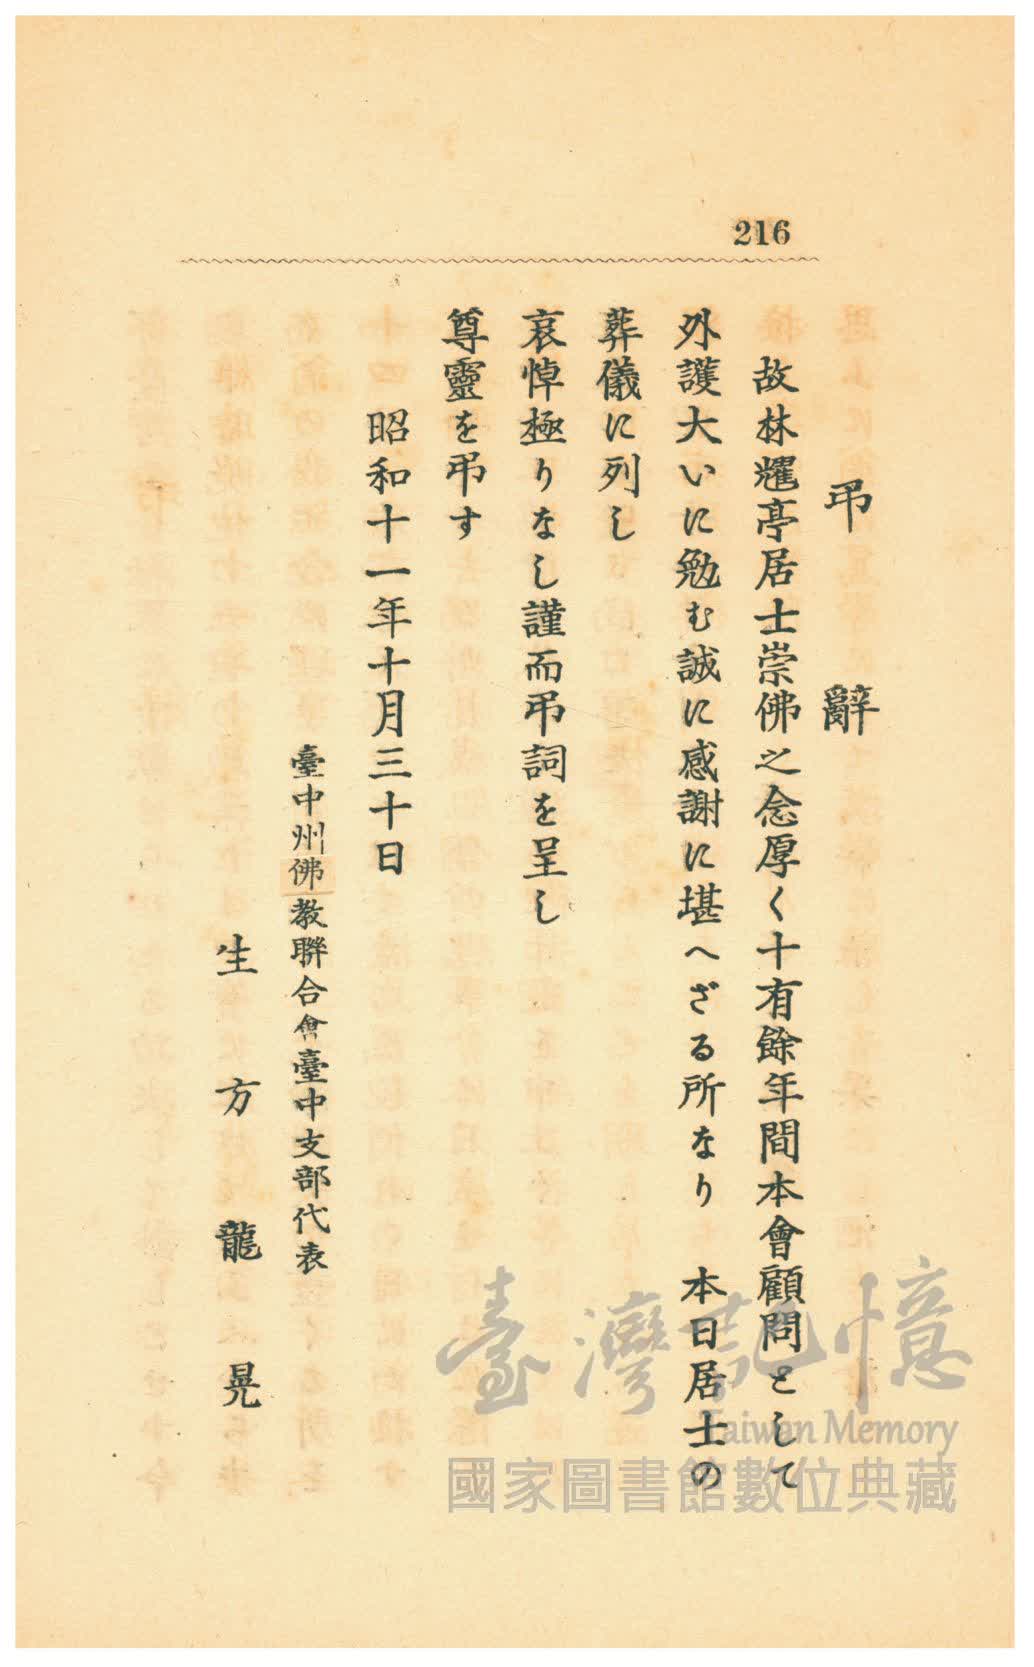 216
弔辭
故林耀亭居士崇佛之念厚く十有餘年間本會顧問として
外護大いに勉む誠に感謝に堪へざる所なり 本日居士の
葬儀に列し
哀悼極りなし謹而弔詞を呈し
尊靈を弔す
昭和十一年十月三十日
臺中州佛教聯合會臺中支部代表
生方龍晃
臺灣記憶
Taiwan Memory
國家圖書館數位典藏